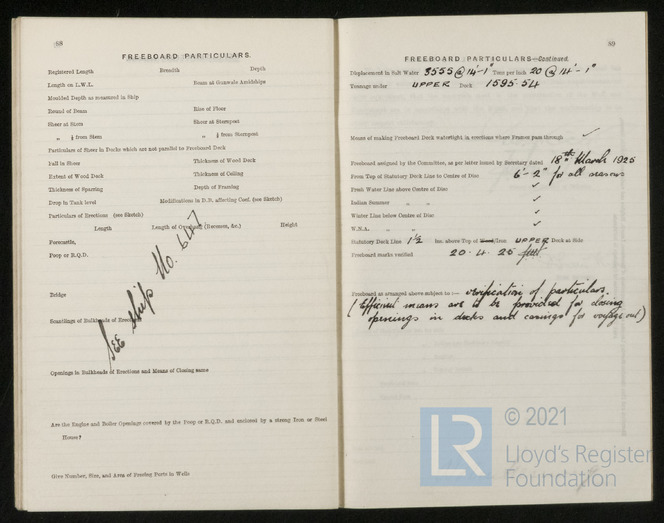 88
FREEBOARD PARTICULARS.
Registered Length Breadth Depth
Length on L.W.L. Beam at Gunwale Amidships
Moulded Depth as measured in Ship
Round of Beam Rise of Floor
Sheer at Stem Sheer at Sternpost
„ ⅛ from Stem „ ⅛ from Sternpost
Particulars of Sheer in Decks which are not parallel to Freeboard Deck
Fall in Sheer Thickness of Wood Deck
Extent of Wood Deck Thickness of Ceiling
Thickness of Sparring Depth of Framing
Drop in Tank level Modifications in D.B. affecting Coef. (see Sketch)
Particulars of Erections (see Sketch)
Length Length of Overhang (Recesses, &c.) Height
Forecastle,
Poop or R.Q.D.
Bridge
Scantlings of Bulkheads of Erections
SEE Ship No. 647
Openings in Bulkheads of Erections and Means of Closing same
Are the Engine and Boiler Openings covered by the Poop or R.Q.D. and enclosed by a strong Iron or Steel
House?
Give Number, Size, and Area of Freeing Ports in Wells
89
FREEBOARD PARTICULARS—Continued.
Displacement in Salt Water 3555 @ 14'-1" Tons per inch 20 @ 14'-1"
Tonnage under UPPER Deck 1595.54
Means of making Freeboard Deck watertight in erections where Frames pass through ✓
Freeboard assigned by the Committee, as per letter issued by Secretary dated 18th March 1925
From Top of Statutory Deck Line to Centre of Disc 6'-2" for all seasons
Fresh Water Line above Centre of Disc ✓
Indian Summer „ „ ✓
Winter Line below Centre of Disc ✓
W.N.A. „ „ ✓
Statutory Deck Line 1½ ins. above Top of Wood/Iron UPPER Deck at Side
Freeboard marks verified 20.4.25
Freeboard as arranged above subject to :— verification of particulars.
(Efficient means are to be provided for closing
openings in decks and casings for voyage out)
LR
© 2021
Lloyd's Register
Foundation